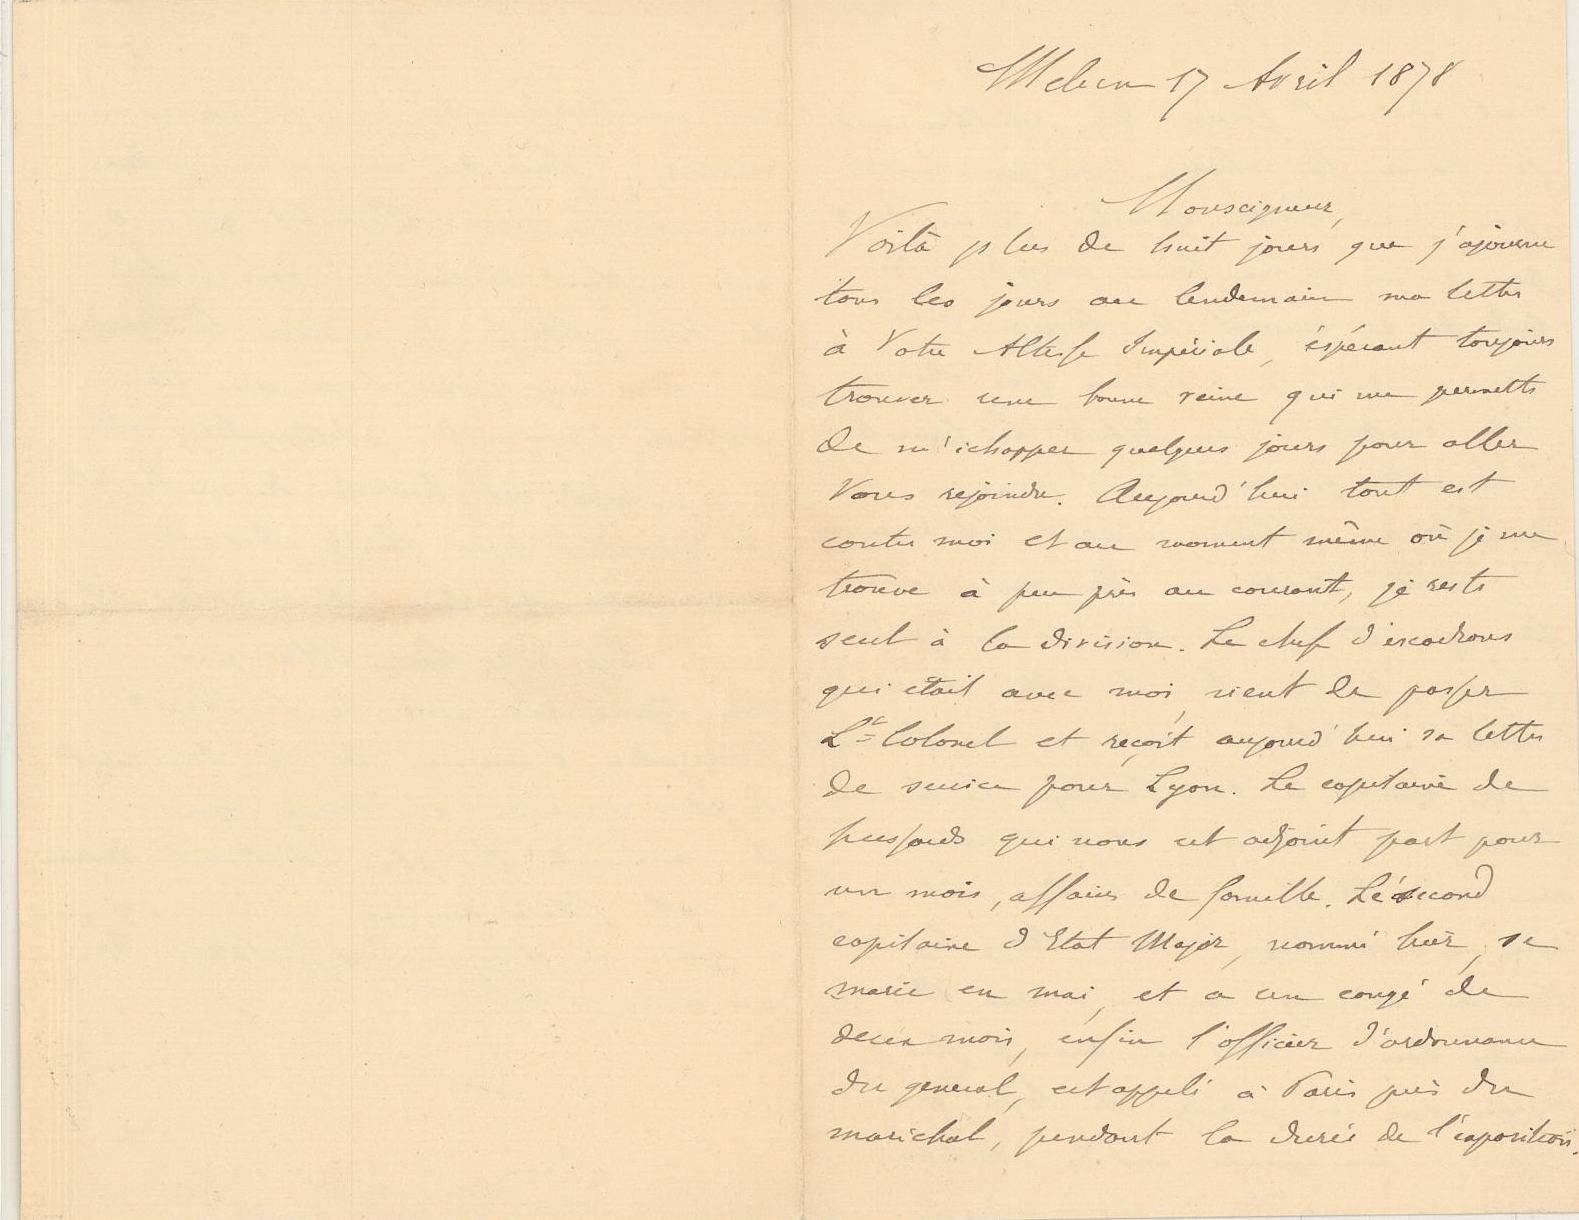 Melun 17 Avril 1878
Monseigneur,
Voilà plus de huit jours que j'ajourne
tous les jours au lendemain ma lettre
à Votre Altesse Impériale, éspérant toujours
trouver une bonne veine qui me permette
de m'échapper quelques jours pour aller
Vous rejoindre. Aujourd'hui tout est
contre moi et au moment même où je me
trouve à peu près au courant, je reste
seul à la division. Le chef d'escadrons
qui était avec moi, vient de passer
Lt Colonel et reçoit aujourd'hui sa lettre
de service pour Lyon. Le capitaine de
hussards qui nous est adjoint part pour
un mois, affaires de famille. Le second
capitaine d'Etat Major, nommé hier, se
marie en mai, et a un congé de
deux mois, enfin l'officier d'ordonnance
du general, est appelé à Paris près du
maréchal, pendant la durée de l'exposition.